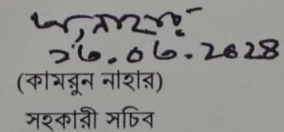 ২৬.০৬.২০২৪
(কামরুন নাহার)
সহকারী সচিব